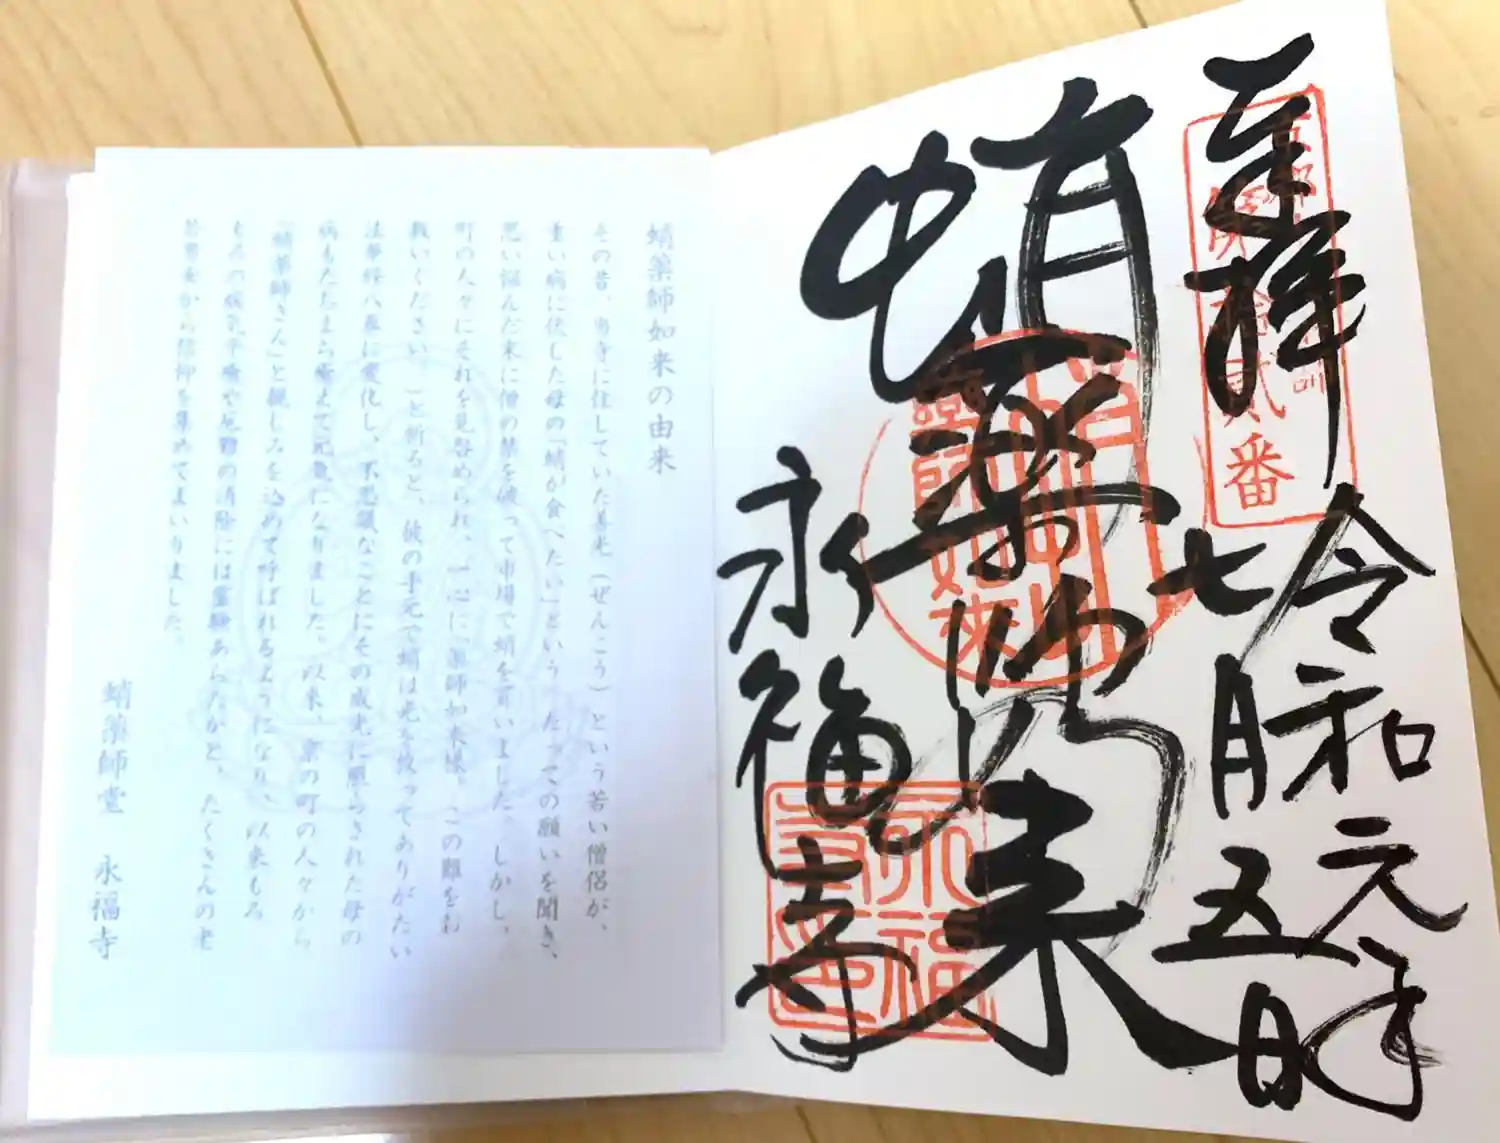 奉拝
令和元年
七月五日
蛸薬師如来
永福寺
貳番
蛸薬師如来の由来
その昔、当寺に住していた善光(ぜんこう)という若い僧侶が、
重い病に伏した母の「蛸が食べたい」という、たっての願いを聞き、
思い悩んだ末に僧の禁を破って市場で蛸を買いました。しかし、
町の人々にそれを見咎められ、一心に「薬師如来様、この難をお
救いください。」と祈ると、彼の手元で蛸は光を放ってありがたい
法華経八巻に変化し、不思議なことにその威光に照らされた母の
病もたちまち癒えて元気になりました。以来、京の町の人々から
「蛸薬師さん」と親しみを込めて呼ばれるようになり、以来もろ
もろの病気平癒や厄難の消除には霊験あらたかと、たくさんの老
若男女から信仰を集めてまいりました。
蛸薬師堂 永福寺